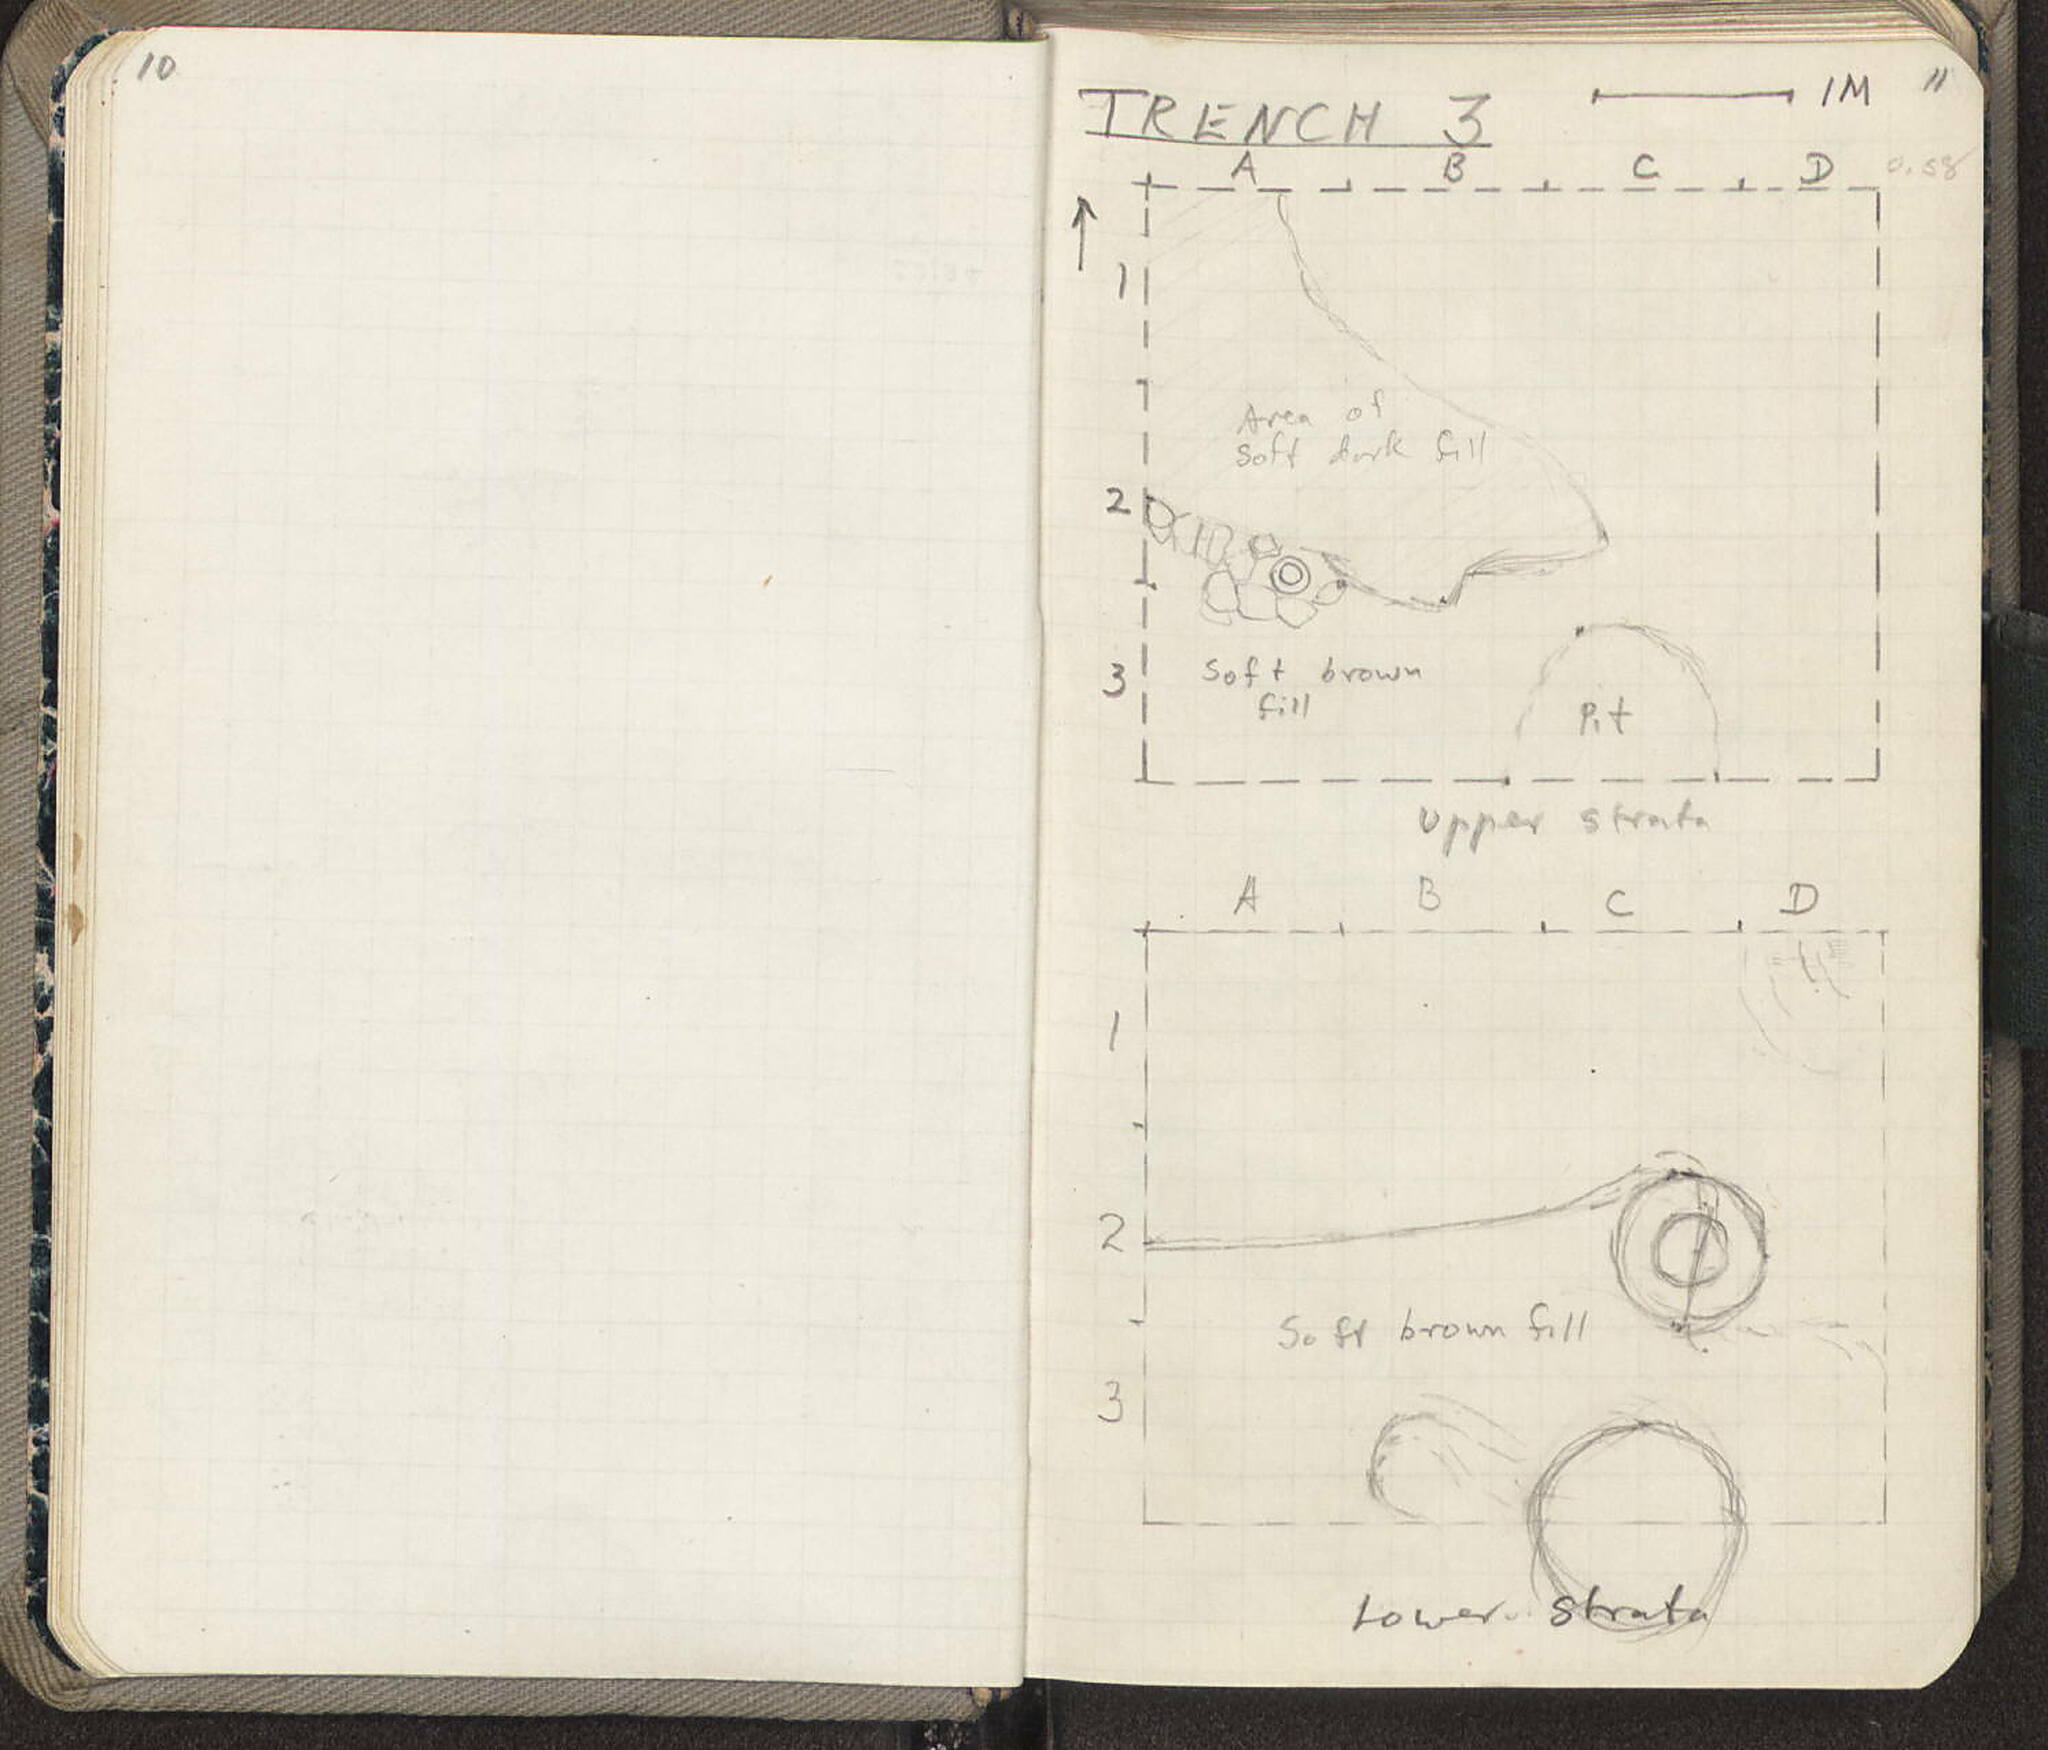 10
11
TRENCH 3
1M
A B C D 0.58
1
Area of
soft dark fill
2
3
Soft brown
fill
Pit
Upper strata
A B C D
1
2
Soft brown fill
3
Lower strata